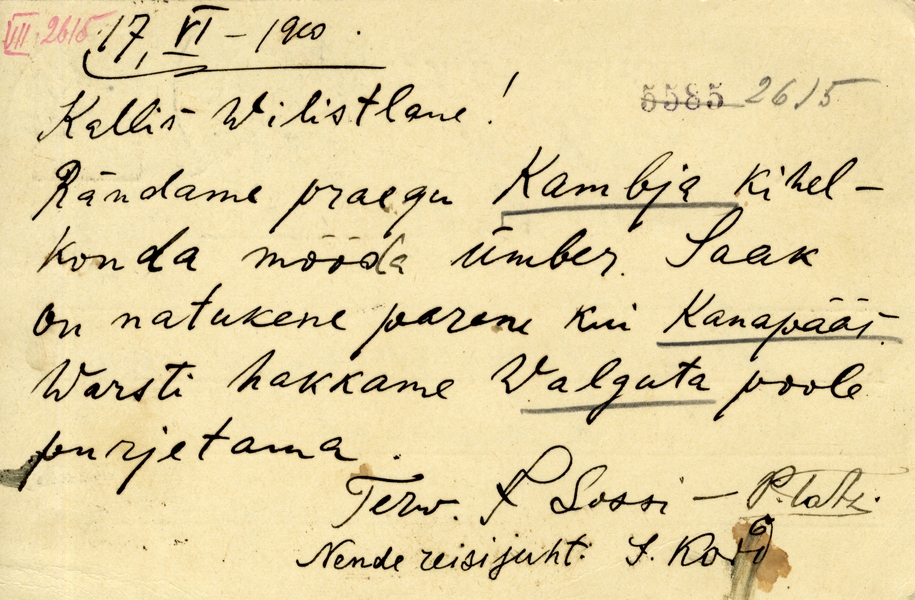 VII 2615
17, VI – 1910.
5585 2615
Kallis Wilistlane!
Rändame praegu Kambja kihel–
konda mööda ümber. Saak
on natukene parem kui Kanapääs.
Warsti hakkame Walguta poole
purjetama.
Terw. P Sossi – P. Tatz.
Nende reisijuht. S.